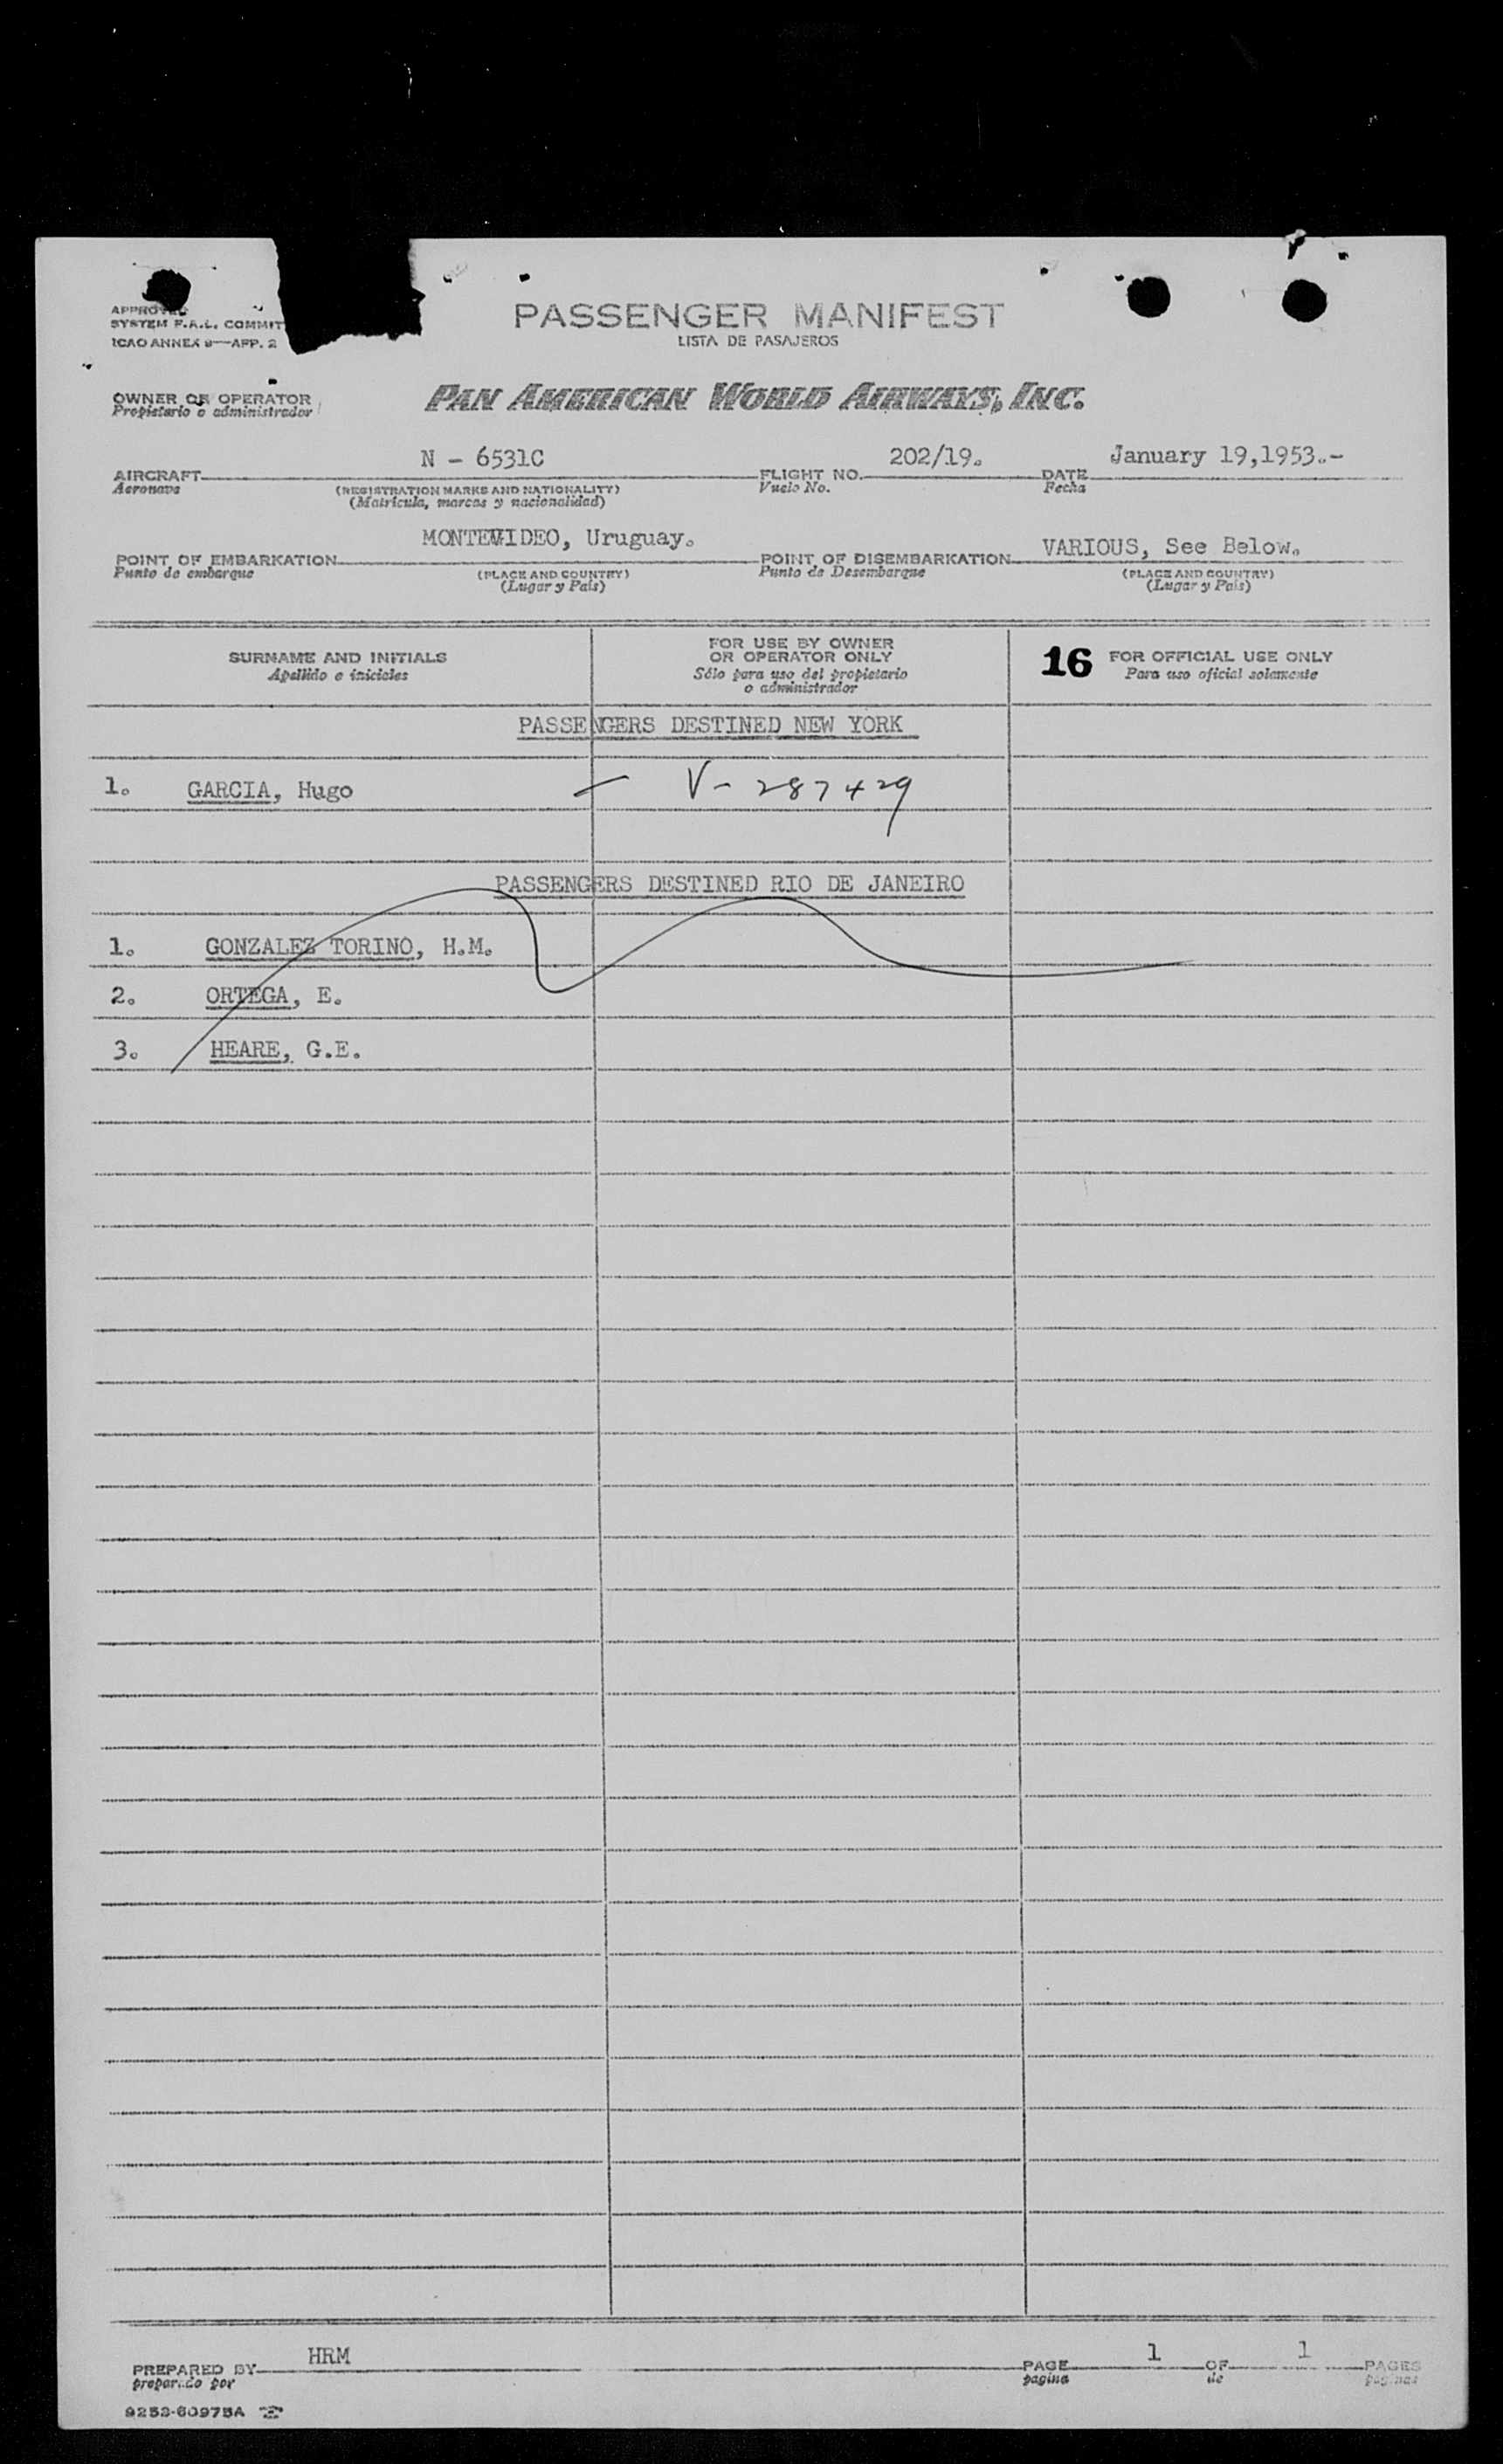 PASSENGER MANIFEST
LISTA DE PASAJEROS
APPROVED
SYSTEM F.A.L. COMMIT
ICAO ANNEX 9—APP. 2
OWNER OR OPERATOR
Propietario o administrador
PAN AMERICAN WORLD AIRWAYS, INC.
AIRCRAFT N - 6531C FLIGHT NO. 202/19. DATE January 19,1953.-
Aeronave (REGISTRATION MARKS AND NATIONALITY) Vuelo No. Fecha
(Matricula, marcas y nacionalidad)
POINT OF EMBARKATION MONTEVIDEO, Uruguay. POINT OF DISEMBARKATION VARIOUS, See Below.
Punto de embarque (PLACE AND COUNTRY) Punto de Desembarque (PLACE AND COUNTRY)
(Lugar y País) (Lugar y País)
SURNAME AND INITIALS
Apellido e iniciales
FOR USE BY OWNER
OR OPERATOR ONLY
Sólo para uso del propietario
o administrador
16 FOR OFFICIAL USE ONLY
Para uso oficial solamente
PASSENGERS DESTINED NEW YORK
1. GARCIA, Hugo — V- 287429
PASSENGERS DESTINED RIO DE JANEIRO
1. GONZALEZ TORINO, H.M.
2. ORTEGA, E.
3. HEARE, G.E.
PREPARED BY HRM PAGE 1 OF 1 PAGES
preparado por pagina de paginas
9253-60975A